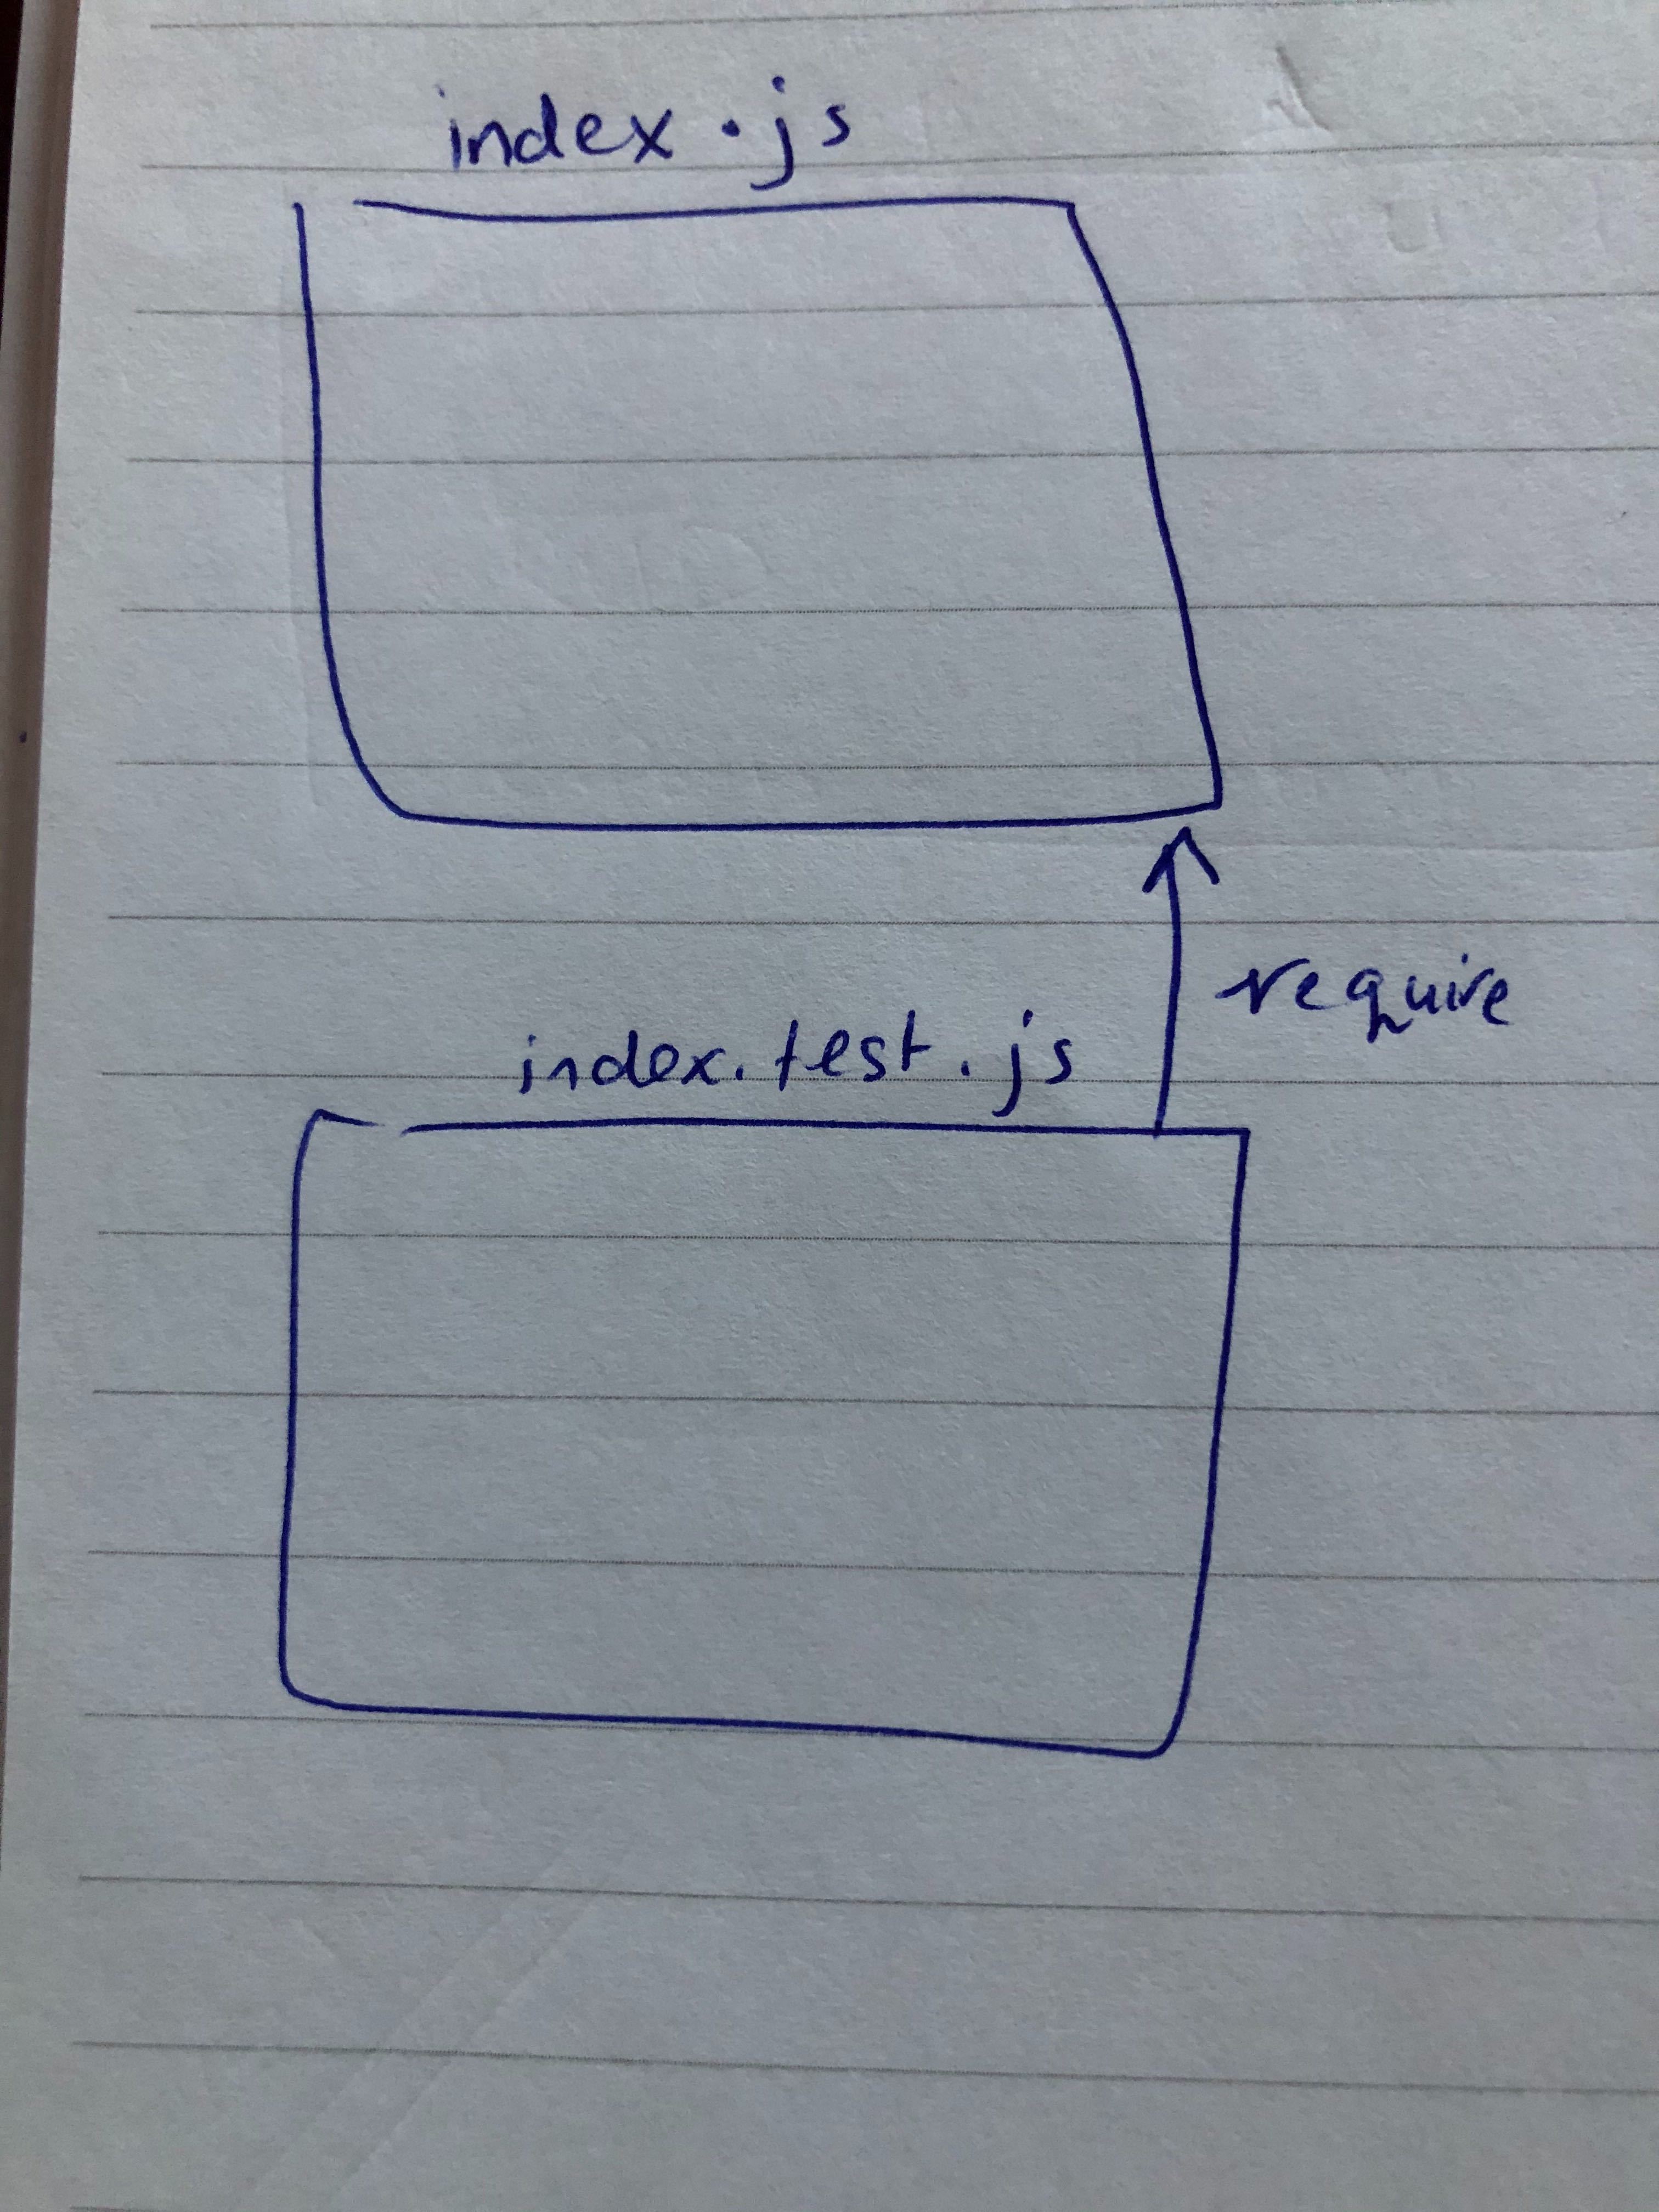 index.js
require
index.test.js